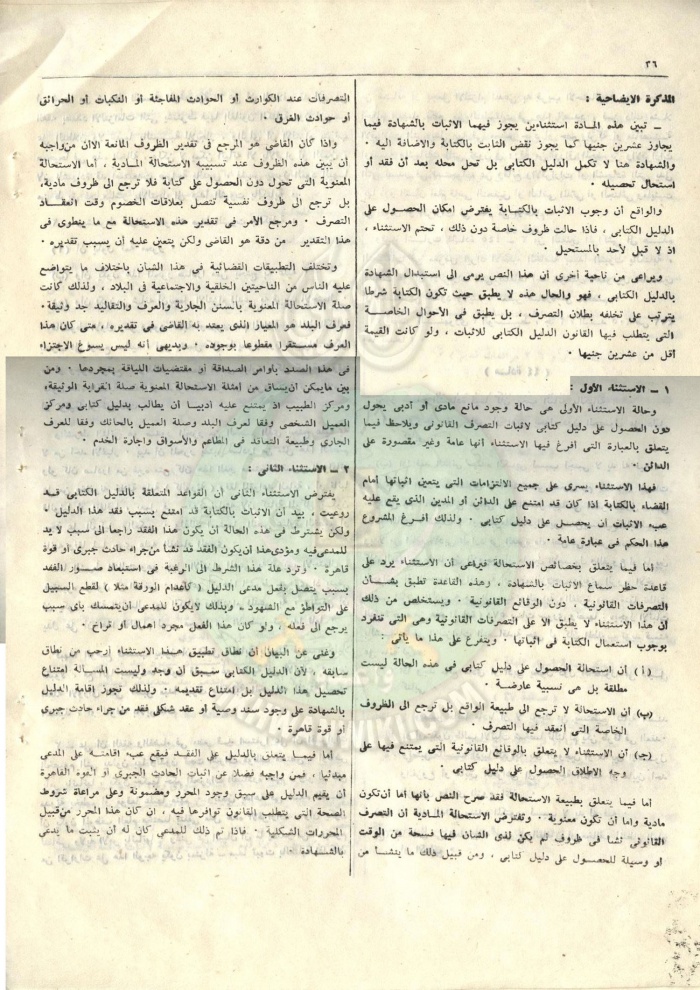 ٢٦
المذكرة الايضاحية :
ـ تبين هذه المادة استثناءين يجوز فيهما الاثبات بالشهادة فيما
يجاوز عشرين جنيها كما يجوز نقض الثابت بالكتابة والاضافة اليه ٠
والشهادة هنا لا تكمل الدليل الكتابى بل تحل محله بعد أن فقد أو
استحال تحصيله ٠
والواقع أن وجوب الاثبات بالكتابة يفترض امكان الحصول على
الدليل الكتابى ، فاذا حالت ظروف خاصة دون ذلك ، تحتم الاستثناء ،
اذ لا قبل لأحد بالمستحيل ٠
ويراعى من ناحية أخرى أن هذا النص يرمى الى استبدال الشهادة
بالدليل الكتابى ، فهو والحال هذه لا يطبق حيث تكون الكتابة شرطا
يترتب على تخلفه بطلان التصرف ، بل يطبق فى الأحوال الخاصة
التى يتطلب فيها القانون الدليل الكتابى للاثبات ، ولو كانت القيمة
أقل من عشرين جنيها ٠
١ ـ الاستثناء الأول :
وحالة الاستثناء الأولى هى حالة وجود مانع مادى أو أدبى يحول
دون الحصول على دليل كتابى لاثبات التصرف القانونى ويلاحظ فيما
يتعلق بالعبارة التى أفرغ فيها الاستثناء أنها عامة وغير مقصورة على
الدائن ٠
فهذا الاستثناء يسرى على جميع الالتزامات التى يتعين اثباتها أمام
القضاء بالكتابة اذا كان قد امتنع على الدائن أو المدين الذى يقع عليه
عبء الاثبات أن يحصل على دليل كتابى ٠ ولذلك أفرغ المشروع
هذا الحكم فى عبارة عامة ٠
أما فيما يتعلق بخصائص الاستحالة فيراعى أن الاستثناء يرد على
قاعدة حظر سماع الاثبات بالشهادة ، وهذه القاعدة تطبق بشأن
التصرفات القانونية ، دون الوقائع القانونية ٠ ويستخلص من ذلك
أن هذا الاستثناء لا يطبق الا على التصرفات القانونية وهى التى تنفرد
بوجوب استعمال الكتابة فى اثباتها ٠ ويتفرع على هذا ما يأتى :
( أ ) أن استحالة الحصول على دليل كتابى فى هذه الحالة ليست
مطلقة بل هى نسبية عارضة ٠
(ب) أن الاستحالة لا ترجع الى طبيعة الواقع بل ترجع الى الظروف
الخاصة التى انعقد فيها التصرف ٠
(جـ) أن الاستثناء لا يتعلق بالوقائع القانونية التى يمتنع فيها على
وجه الاطلاق الحصول على دليل كتابى ٠
أما فيما يتعلق بطبيعة الاستحالة فقد صرح النص بأنها أما أن تكون
مادية واما أن تكون معنوية ٠ وتفترض الاستحالة المادية أن التصرف
القانونى نشأ فى ظروف لم يكن لدى الشأن فيها فسحة من الوقت
أو وسيلة للحصول على دليل كتابى ، ومن قبيل ذلك ما ينشأ من
التصرفات عند الكوارث أو الحوادث المفاجئة أو النكبات أو الحرائق
أو حوادث الغرق ٠
واذا كان القاضى هو المرجع فى تقدير الظروف المانعة الا أن من واجبه
أن يبين هذه الظروف عند تسبيبه الاستحالة المادية ، أما الاستحالة
المعنوية التى تحول دون الحصول على كتابة فلا ترجع الى ظروف مادية،
بل ترجع الى ظروف نفسية تتصل بعلاقات الخصوم وقت انعقاد
التصرف ٠ ومرجع الأمر فى تقدير هذه الاستحالة مع ما ينطوى فى
هذا التقدير من دقة هو القاضى ولكن يتعين عليه أن يسبب تقديره ٠
وتختلف التطبيقات القضائية فى هذا الشأن باختلاف ما يتواضع
عليه الناس من الناحيتين الخلقية والاجتماعية فى البلاد ، ولذلك كانت
صلة الاستحالة المعنوية بالسنن الجارية والعرف والتقاليد جد وثيقة٠
فعرف البلد هو المعيار الذى يعتد به القاضى فى تقديره ، متى كان هذا
العرف مستقرا مقطوعا بوجوده ٠ وبديهى أنه ليس يسوغ الاجتزاء
فى هذا الصدد بأوامر الصداقة أو مقتضيات اللياقة بمجردها ٠ ومن
بين ما يمكن أن يساق من أمثلة الاستحالة المعنوية صلة القرابة الوثيقة،
ومركز الطبيب اذ يمتنع عليه أدبيا أن يطالب بدليل كتابى ومركز
العميل الشخصى وفقا لعرف البلد وصلة العميل بالحائك وفقا للعرف
الجارى وطبيعة التعاقد فى المطاعم والأسواق واجارة الخدم ٠
٢ ـ الاستثناء الثانى :
يفترض الاستثناء الثانى أن القواعد المتعلقة بالدليل الكتابى قد
روعيت ، بيد أن الاثبات بالكتابة قد امتنع بسبب فقد هذا الدليل ٠
ولكن يشترط فى هذه الحالة أن يكون هذا الفقد راجعا الى سبب لا يد
للمدعى فيه ومؤدى هذا أن يكون الفقد قد نشأ من جراء حادث جبرى أو قوة
قاهرة ٠ وترد علة هذا الشرط الى الرغبة فى استبعاد صور الفقد
بسبب يتصل بفعل مدعى الدليل ( كاعدام الورقة مثلا ) لقطع السبيل
على التواطؤ مع الشهود ٠ وبذلك لا يكون للمدعى أن يتمسك بأى سبب
يرجع الى فعله ، ولو كان هذا الفعل مجرد اهمال أو تراخ ٠
وغنى عن البيان أن نطاق تطبيق هذا الاستثناء أرحب من نطاق
سابقه ، لأن الدليل الكتابى سبق أن وجد وليست المسألة امتناع
تحصيل هذا الدليل بل امتناع تقديمه ٠ ولذلك تجوز اقامة الدليل
بالشهادة على وجود سند وصية أو عقد شكلى فقد من جراء حادث جبرى
أو قوة قاهرة ٠
أما فيما يتعلق بالدليل على الفقد فيقع عبء اقامته على المدعى
مبدئيا ، فمن واجبه فضلا عن اثبات الحادث الجبرى أو القوة القاهرة
أن يقيم الدليل على سبق وجود المحرر ومضمونة وعلى مراعاة شروط
الصحة التى يتطلب القانون توافرها فيه ، ان كان هذا المحرر من قبيل
المحررات الشكلية ٠ فاذا تم ذلك للمدعى كان له أن يثبت ما يدعى
بالشهادة ٠